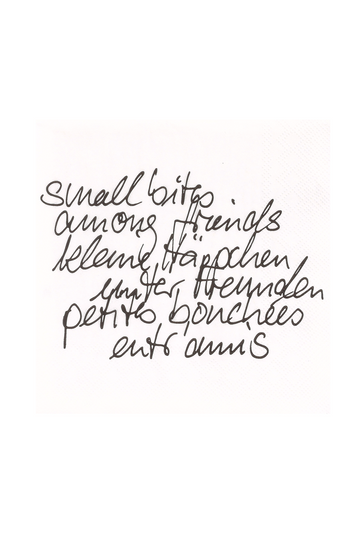 small bites
among friends
kleine Häppchen
unter Freunden
petites bouchées
entr amis